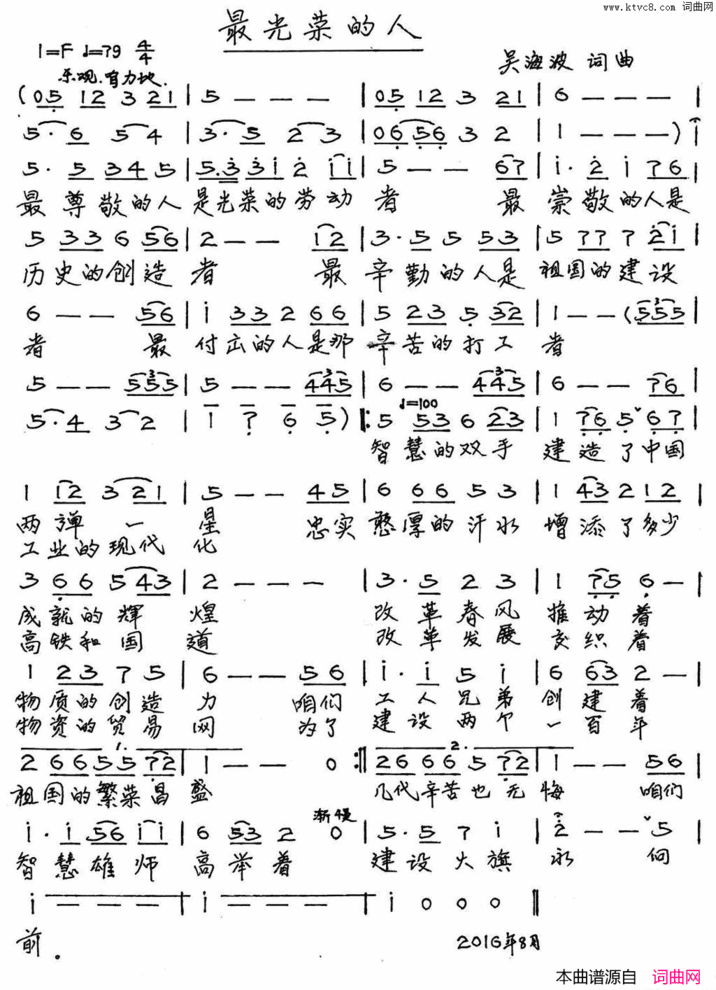 www.ktvc8.com 词曲网
最光荣的人
1=F ♩=79 4/4
吴海波 词曲
乐观.有力地.
(05 12 3 21 | 5 - - - | 05 12 3 21 | 6 - - - |
5· 6 5 4 | 3· 5 2 3 | 06 56 3 2 | 1 - - -) |
5· 5 3 4 5 | 5.3 3 1 2 1 1 | 5 - - 67 | 1· 2 1 76 |
最尊敬的人是光荣的劳动 者 最 崇敬的人是
5 3 3 6 56 | 2 - - 12 | 3· 5 5 53 | 5 77 7 21 |
历史的创造 者 最 辛勤的人是 祖国的建设
6 - - 56 | 1 33 2 66 | 5 23 5 32 | 1 - - (555 |
者 最 付出的人是那 辛苦的打工 者
5 - - 555 | 5 - - 445 | 6 - - 445 | 6 - - 76 |
♩=100
5· 4 3 2 | 1 7 6 5) |: 5 53 6 23 | 1 76 5 67 |
智慧的双手 建造了中国
1 12 3 21 | 5 - - 45 | 6 66 5 3 | 1 43 2 12 |
两弹一 星 忠实 憨厚的汗水 增添了多少
工业的现代 化
3 66 5 43 | 2 - - - | 3· 5 2 3 | 1 75 6 - |
成就的辉 煌 改革春风 推动着
高铁和国 道 改革发展 交织着
1 23 7 5 | 6 - - 56 | 1· 1 5 1 | 6 63 2 - |
物质的创造 力 咱们 工人兄弟 创建着
物资的贸易 网 为了 建设两个 一百年
1. 2.
2 66 55 72 | 1 - - 0 :| 26 66 5 72 | 1 - - 56 |
祖国的繁荣昌 盛 几代辛苦也无 悔 咱们
渐慢
1· 1 56 11 | 6 53 2 0 | 5· 5 7 1 | 2 - - 5 |
智慧雄师 高举着 建设大旗 永 向
1 - - - | 1 - - - | 1 0 0 0 ‖
前。 2016年8月
本曲谱源自 词曲网